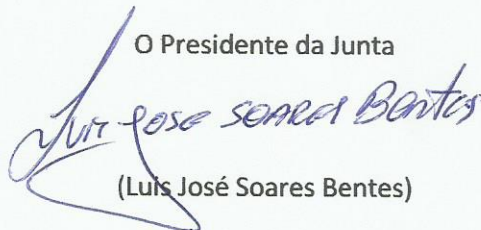 O Presidente da Junta
Luis José Soares Bentes
(Luís José Soares Bentes)